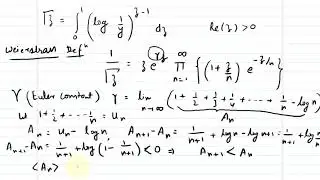 Γz = ∫₀¹ (log 1/y)^{z-1} dz    Re(z) > 0
Weierstrass Defⁿ
1/Γz = z e^{γz} ∏_{n=1}^{∞} {(1 + z/n) e^{-z/n}}
γ (Euler constant) γ = lim_{n→∞} (1 + 1/2 + 1/3 + 1/4 + --- + 1/n - log n)
Aₙ
1 + 1/2 - - - - + 1/n = uₙ
Aₙ = uₙ - log n, Aₙ₊₁ - Aₙ = 1/(n+1) + log n - log n+1 = 1/(n+1) +
Aₙ₊₁ - Aₙ = 1/(n+1) + log (1 - 1/(n+1)) < 0 ⇒ Aₙ₊₁ < Aₙ
<Aₙ>